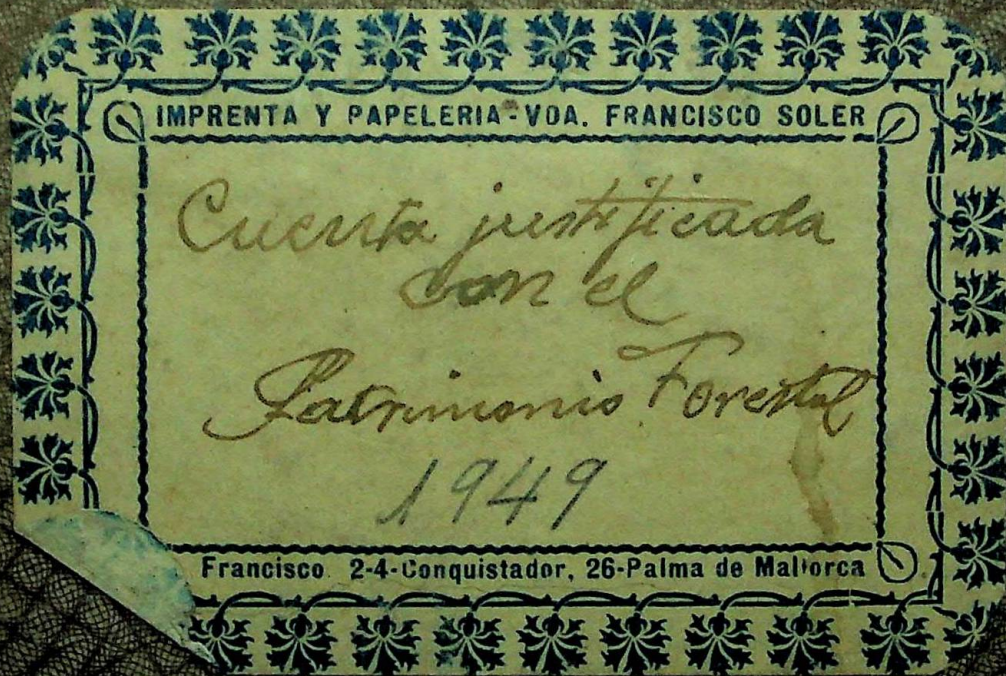 IMPRENTA Y PAPELERIA - VDA. FRANCISCO SOLER
Cuenta justificada
con el
Patrimonio Forestal
1949
Francisco 2-4-Conquistador, 26-Palma de Mallorca